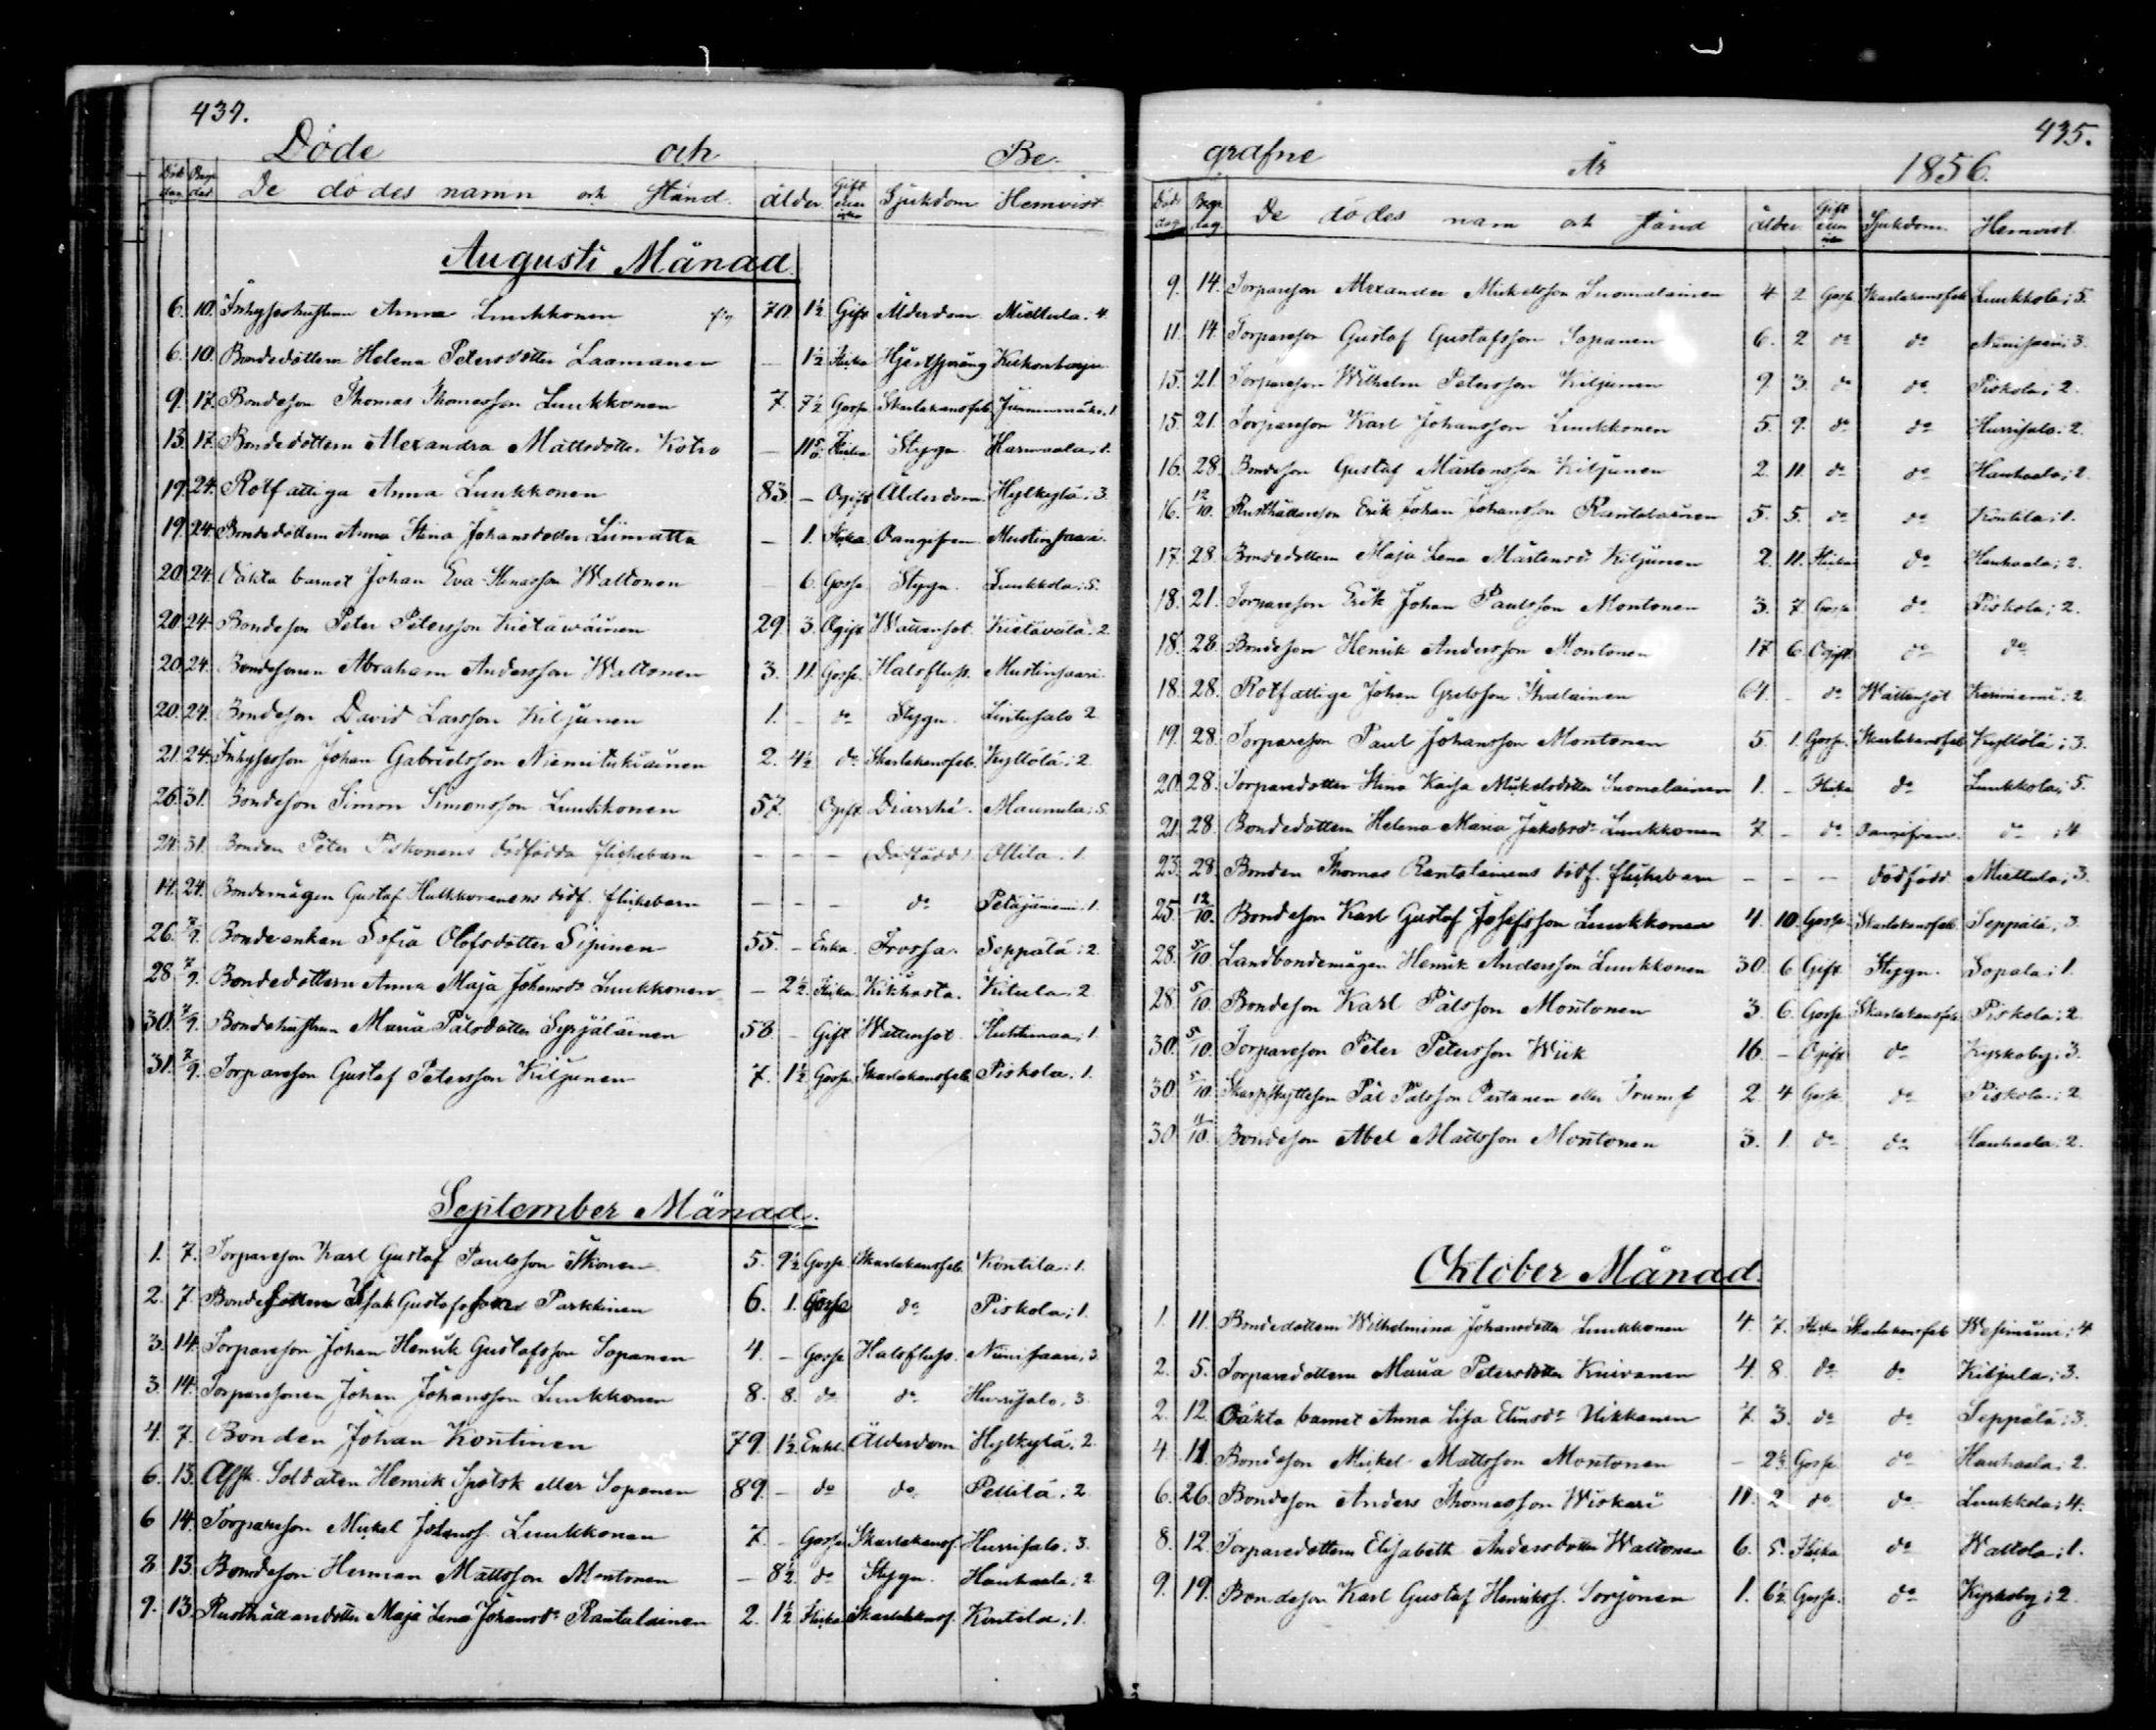 437.
Döde och Be-
Död dag Begr dag De dödes namn och stånd. ålder. Gift eller icke Sjukdom Hemvist
Augusti Månad
6. 10. Inhyseshustrun Anna Luukkonen 70. 1½ Gift Ålderdom Miettula. 4.
6. 10. Bondedottern Helena Petersdotter Laamanen — 1½ Flicka Hjertsprång
9. 17. Bondeson Thomas Thomasson Luukkonen 7. 7½ Gosse Skarlakansfeb.
13. 17. Bondedottern Alexandra Mattsdotter Kotro — Flicka Stygn Harmaala; 1.
19. 24. Rotfattiga Anna Luukkonen 83. — Ogift Ålderdom Hylkylä; 3.
19. 24. Bondedottern Anna Stina Johansdotter Liimatta — 1. Flicka Oangifven Mustinsaari.
20. 24. Oäkta barnet Johan Eva Stinasson Waltonen — 6. Gosse Stygn. Luukkola; 5.
20. 24. Bondeson Peter Petersson Kietäwäinen 29. 3. Ogift Wattensot. Kietävälä. 2.
20. 24. Bondesonen Abraham Andersson Waltonen 3. 11. Gosse. Halsfluss. Mustinsaari.
20. 24. Bondeson David Larsson Kiljunen 1. — do Stygn. Lintusalo 2.
21. 24. Inhysesson Johan Gabrielsson Niemitukiainen 2. 4½ do Skarlakansfeb. Kyllölä; 2.
26. 31. Bondeson Simon Simonsson Luukkonen 57. Ogift Diarrhé. Maunula; 5.
24. 31. Bonden Peter Piskonens dödfödda flickebarn — — — (Dödfödd) Ollila. 1.
14. 24. Bondemågen Gustaf Hulkkonenens dödf. flickebarn — — — do Petäjäniemi. 1.
26. 7/9. Bondeenkan Sofia Olofsdotter Sipinen 55. — Enka. Frossa. Seppälä; 2.
28. 7/9. Bondedottern Anna Maja Johansdr Luukkonen — 2½. Flicka. Kikhosta. Kitula. 2.
30. 7/9. Bondehustrun Maria Pålsdotter Syrjäläinen 58. — Gift Wattensot. 1.
31. 7/9. Torpareson Gustaf Petersson Kiljunen 7. 1½ Gosse Skarlakansfeb. Piskola. 1.
September Månad.
1. 7. Torpareson Karl Gustaf Paulsson Ikonen 5. 9½ Gosse Skarlakansfeb. Kontila; 1.
2. 7. Isak Gustafsson Parkkinen 6. 1. Gosse do Piskola; 1.
3. 14. Torpareson Johan Henrik Gustafsson Sopanen 4. — Gosse Halsfluss. Niinisaari; 3.
3. 14. Torparesonen Johan Johansson Luukkonen 8. 8. do do Hurrisalo. 3.
4. 7. Bonden Johan Kontinen 79. 1½ Enkl. Ålderdom Hylkylä. 2.
6. 13. Afsk. Soldaten Henrik Spotsk eller Sopanen 89. — do do Pellilä. 2.
6 14. Torpareson Mickel Johanss. Luukkonen 7. — Gosse Skarlakansf. Hurrisalo. 3.
8. 13. Bondeson Herman Mattsson Montonen — 8½ do Stygn. Hauhaala; 2.
9. 13. Rusthållaredotter Maja Lena Johansdr Rantalainen 2. 1½ Flicka Skarlakansf. Kontila; 1.
435.
grafne År 1856.
Död dag Begr. dag De dödes nam och stånd ålder. Gift eller icke Sjukdom. Hemvist.
9. 14. Torpareson Alexander Mickelsson Suomalainen 4 2 Gosse Skarlakansfeb Luukkola; 5.
11. 14. Torpareson Gustaf Gustafsson Sopanen 6. 2 do do Niinisaari; 3.
15. 21. Torpareson Wilhelm Petersson Kiljunen 9. 3. do do Piskola; 2.
15. 21. Torpareson Karl Johansson Luukkonen 5. 9. do do Hurrisalo. 2.
16. 28. Bondeson Gustaf Mårtensson Kiljunen 2. 11. do do Hauhaala; 2.
16. 12/10. Rusthållareson Erik Johan Johansson Rantalainen 5. 5. do do Kontila; 1.
17. 28. Bondedottern Maja Lena Mårtensdr Kiljunen 2. 11. Flicka do Hauhaala; 2.
18. 21. Torpareson Erik Johan Paulsson Montonen 3. 7. Gosse do Piskola; 2.
18. 28. Bondeson Henrik Andersson Montonen 17 6. Ogift do do
18. 28. Rotfattige Johan Gretsson Ikalainen 64. — do Wattensot Keriniemi; 2.
19. 28. Torpareson Paul Johansson Montonen 5. 1. Gosse. Skarlakansfeb. Kyllölä; 3.
20. 28. Torparedotter Stina Kaisa Mickelsdotter Suomalainen 1. — Flicka do Luukkola; 5.
21. 28. Bondedottern Helena Maria Jakobsdr Luukkonen 7. — do Oangifven. do ; 4
23. 28. Bonden Thomas Rantalainens dödf. flickebarn — — — dödfödd. Miettula; 3.
25. 12/10. Bondeson Karl Gustaf Josefsson Luukkonen 4. 10. Gosse. Skarlakansfeb. Seppälä; 3.
28. 5/10. Landbondemågen Henrik Andersson Luukkonen 30. 6 Gift Stygn. Sopala; 1.
28. 5/10. Bondeson Karl Pålsson Montonen 3. 6. Gosse Skarlakansfeb. Piskola; 2.
30. 5/10. Torpareson Peter Petersson Wiik 16. — Ogift do Kyrkoby; 3.
30. 5/10. Skarpskytteson Pål Pålsson Partanen eller Trumf 2. 4 Gosse. do Piskola; 2.
30. Bondeson Abel Mattsson Montonen 3. 1. do do Hauhaala; 2.
Oktober Månad.
1. 11. Bondedottern Wilhelmina Johansdotter Luukkonen 4. 7. Flicka Skarlakansfeb 4.
2. 5. Torparedottern Maria Petersdotter Kuivanen 4. 8. do do Kiljula; 3.
2. 12. Oäkta barnet Anna Lisa Elinsdr Ukkanen 7. 3. do do Seppälä; 3.
4. 11. Bondeson Mickel Mattsson Montonen — 2½ Gosse. do Hauhaala; 2.
6. 26. Bondeson Anders Thomasson Wiskari 11. 2 do do Luukkola; 4.
8. 12. Torparedottern Elisabeth Andersdotter Waltonen 6. 5. Flicka do Waltola; 1.
9. 19. Bondeson Karl Gustaf Henrikss. Sorjonen 1. 6½ Gosse. do Kyrkoby; 2.